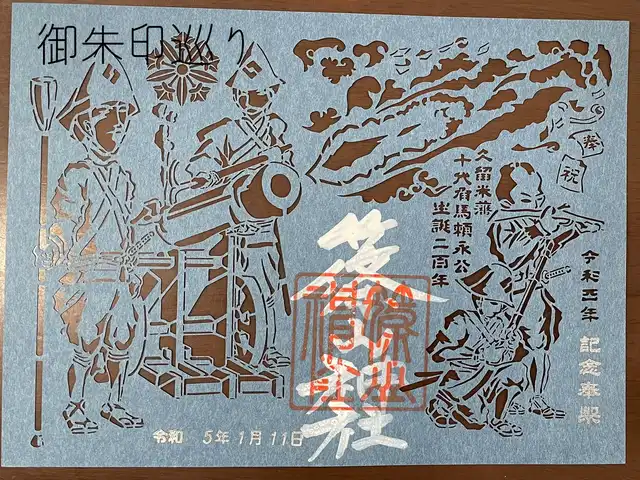 御朱印巡り
奉祝
久留米藩
十代有馬頼永公
生誕二百年
令和五年
記念奉製
篠山神社
令和 5年1月11日